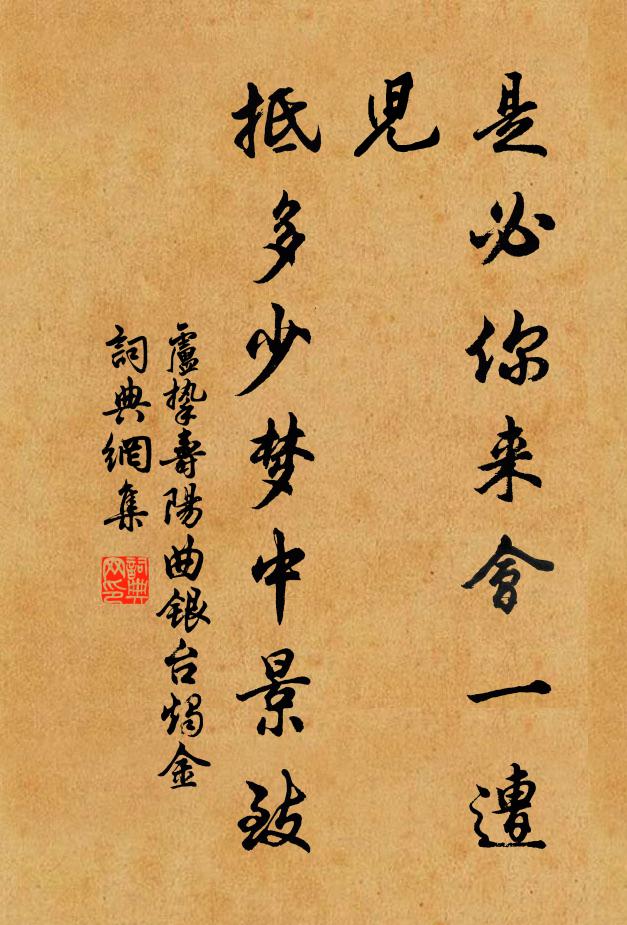 是必你来會一遭
児
抵多少梦中景致
盧挚壽陽曲銀台燭金
詞典網集
詞典
网印